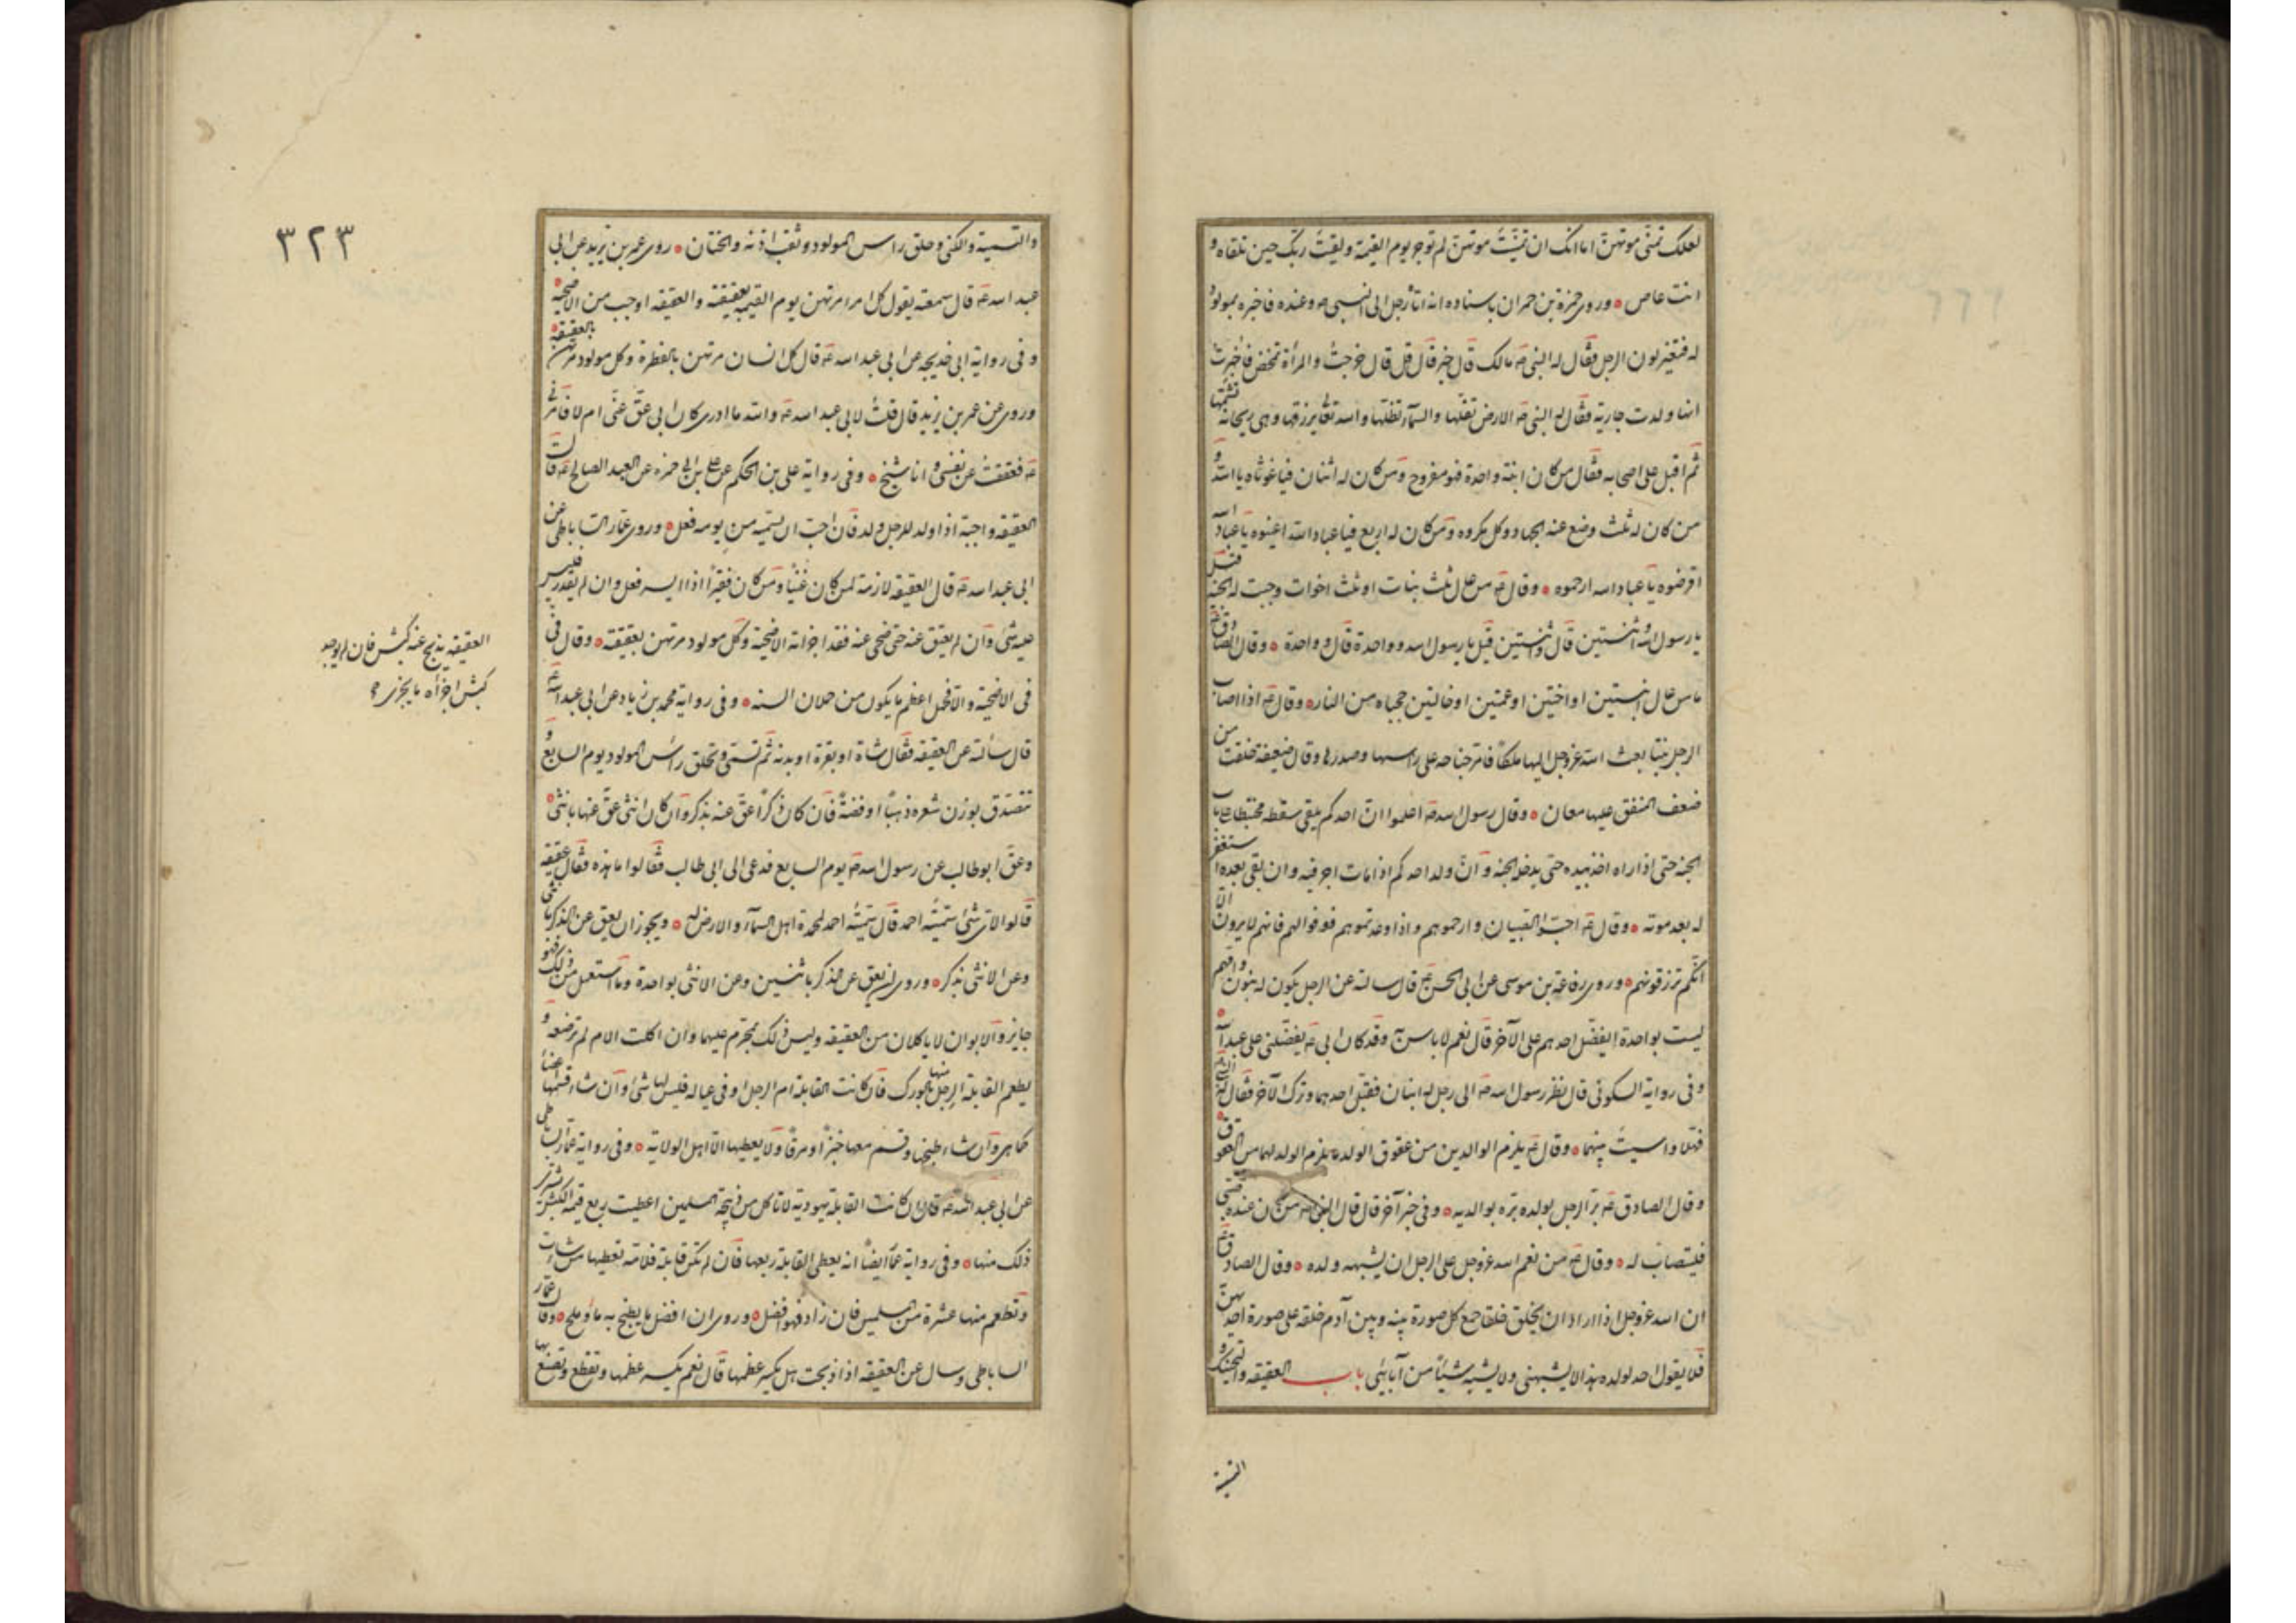 لعلك تمنّى موتهنّ اما انك ان تمنّيت موتهنّ لم توجر يوم القيمة ولقيت ربّك حين تلقاه و
انت عاص وروى حمزة بن حمران باسناده انه اتى رجل الى النبي ص وعنده فاخبره بمولود
له فتغير لون الرجل فقال له النبي ص مالك قال خير قال قل قال خرجت والمرأة تمخض فاخبرت
انها ولدت جارية فقال له النبي ص الارض تقلّها والسّماء تظلّها والله تعالى يرزقها وهي ريحانة تشمّها
ثمّ اقبل على اصحابه فقال من كان له ابنة واحدة فهو مفروح ومن كان له اثنتان فياغوثاه بالله و
من كان له ثلث وضع عنه الجهاد وكل مكروه ومن كان له اربع فيا عباد الله اعينوه يا عباد الله
اقرضوه يا عباد الله ارحموه وقال ع من عال ثلث بنات او ثلث اخوات وجبت له الجنة قيل
يا رسول الله واثنتين قال واثنتين قيل يا رسول الله وواحدة قال وواحدة وقال الصادق ع
من عال ابنتين او اختين او عمتين او خالتين حجبتاه من النار وقال ع اذا اصاب
الرجل بنتا بعث الله عز وجل اليها ملكاً فامرّ جناحه على راسها وصدرها وقال ضعيفة خلقت من
ضعف المنفق عليها معان وقال رسول الله ص اعلموا انّ احدكم يلقى سقطه محبنطئا على باب
الجنة حتى اذا راه اخذ بيده حتى يدخله الجنة وانّ ولد احدكم اذا مات اجر فيه وان بقى بعده استغفر
له بعد موته وقال ع احبّوا الصبيان وارحموهم واذا وعدتموهم ففوا لهم فانهم لا يرون الّا
انّكم ترزقونهم وروى رفاعة بن موسى عن ابي الحسن ع قال سالته عن الرجل يكون له بنون وامّهم
ليست بواحدة ايفضّل احدهم على الآخر قال نعم لا باس به وقد كان ابي ع يفضّلني على عبد الله
وفي رواية السكوني قال نظر رسول الله ص الى رجل له ابنان فقبّل احدهما وترك الآخر فقال له النبي ص
فهلا واسيت بينهما وقال ع يلزم الوالدين من عقوق الولد ما يلزم الولد لهما من العقوق
وقال الصادق ع برّ الرجل بولده برّه بوالديه وفي خبر آخر قال قال النبي ص من كان عنده صبي
فليتصاب له وقال ع من نعم الله عز وجل على الرجل ان يشبهه ولده وقال الصادق ع
ان الله عز وجل اذا اراد ان يخلق خلقا جمع كل صورة بينه وبين آدم خلقه على صورة احديهنّ
فلا يقولن احد لولده هذا لا يشبهني ولا يشبه شيئاً من آبائي باب العقيقه والتحنيك و
التسمية
٣٢٣
والتسمية والكنى وحلق راس المولود وثقب اذنه والختان روى عمر بن يزيد عن ابي
عبد الله ع قال سمعته يقول كل امرء مرتهن يوم القيمة بعقيقته والعقيقه اوجب من الاضحية
وفي رواية ابي خديجه عن ابي عبد الله ع قال كل انسان مرتهن بالفطرة وكل مولود مرتهن بالعقيقة
وروى عن عمر بن يزيد قال قلت لابي عبد الله ع والله ما ادرى كان ابي عقّ عنّى ام لا فامرني
ع فعققت عن نفسى وانا شيخ وفي رواية على بن الحكم عن علي بن ابي حمزه عن العبد الصالح ع قال
العقيقه واجبة اذا ولد للرجل ولد فان احبّ ان يسميه من يومه فعل وروى عمّار الساباطى عن
ابي عبد الله ع قال العقيقه لازمة لمن كان غنيّاً ومن كان فقيراً اذا ايسر فعل وان لم يقدر فليس
عليه شئ وان لم يعق عنه حتى ضحى عنه فقد اجزاته الاضحية وكل مولود مرتهن بعقيقته وقال في
العقيقه يذبح عنه كبش فان لم يوجد
كبش اجزاه ما يجزى
في الاضحية والا فحمل اعظم ما يكون من حملان السنه وفي رواية محمد بن زياد عن ابي عبد الله ع
قال سألته عن العقيقه فقال شاة او بقرة او بدنه ثمّ تسمّى وتحلق راس المولود يوم السابع و
تتصدق بوزن شعره ذهباً او فضةً فان كان ذكراً عقّ عنه بذكر وان كان انثى عقّ عنها بانثى
وعقّ ابو طالب عن رسول الله ص يوم السابع فدعى الى ابي طالب فقالوا ما هذه فقال عقيقه
قالوا لاى شئ سمّيته احمد قال سمّيته احمد لمحمدة اهل السّماء والارض له ويجوز ان يعق عن الذكر بانثى
وعن الانثى بذكر وروى ان يعق عن الذكر باثنين وعن الانثى بواحدة وما استعمل من ذلك فهو
جايز والابوان لا ياكلان من العقيقه وليس ذلك بمحرّم عليهما وان اكلت الام لم ترضعه و
يطعم القابلة الرجل منها بالورك فان كانت القابلة ام الرجل او في عياله فليس لها شئ وان شاء قسمها اعضاء
كما هى وان شاء طبخها وقسم معها خبزاً ومرقاً ولا يعطيها الّا اهل الولاية وفي رواية عمّار الساباطى
عن ابي عبد الله ع قال ان كانت القابلة يهودية لا تاكل من ذبيحة المسلمين اعطيت ربع قيمة الكبش تشترى
ذلك منها وفي رواية عمار ايضاً انه يعطى القابلة ربعها فان لم تكن قابلة فلامّه تعطيها من شاءت
وتطعم منها عشرة من المسلمين فان زاد فهو افضل وروى ان افضل ما يطبخ به ماء وملح وقال عمّار
الساباطى وسال عن العقيقه اذا ذبحت هل يكسر عظمها قال نعم يكسر عظمها وتقطع وتصنع بها